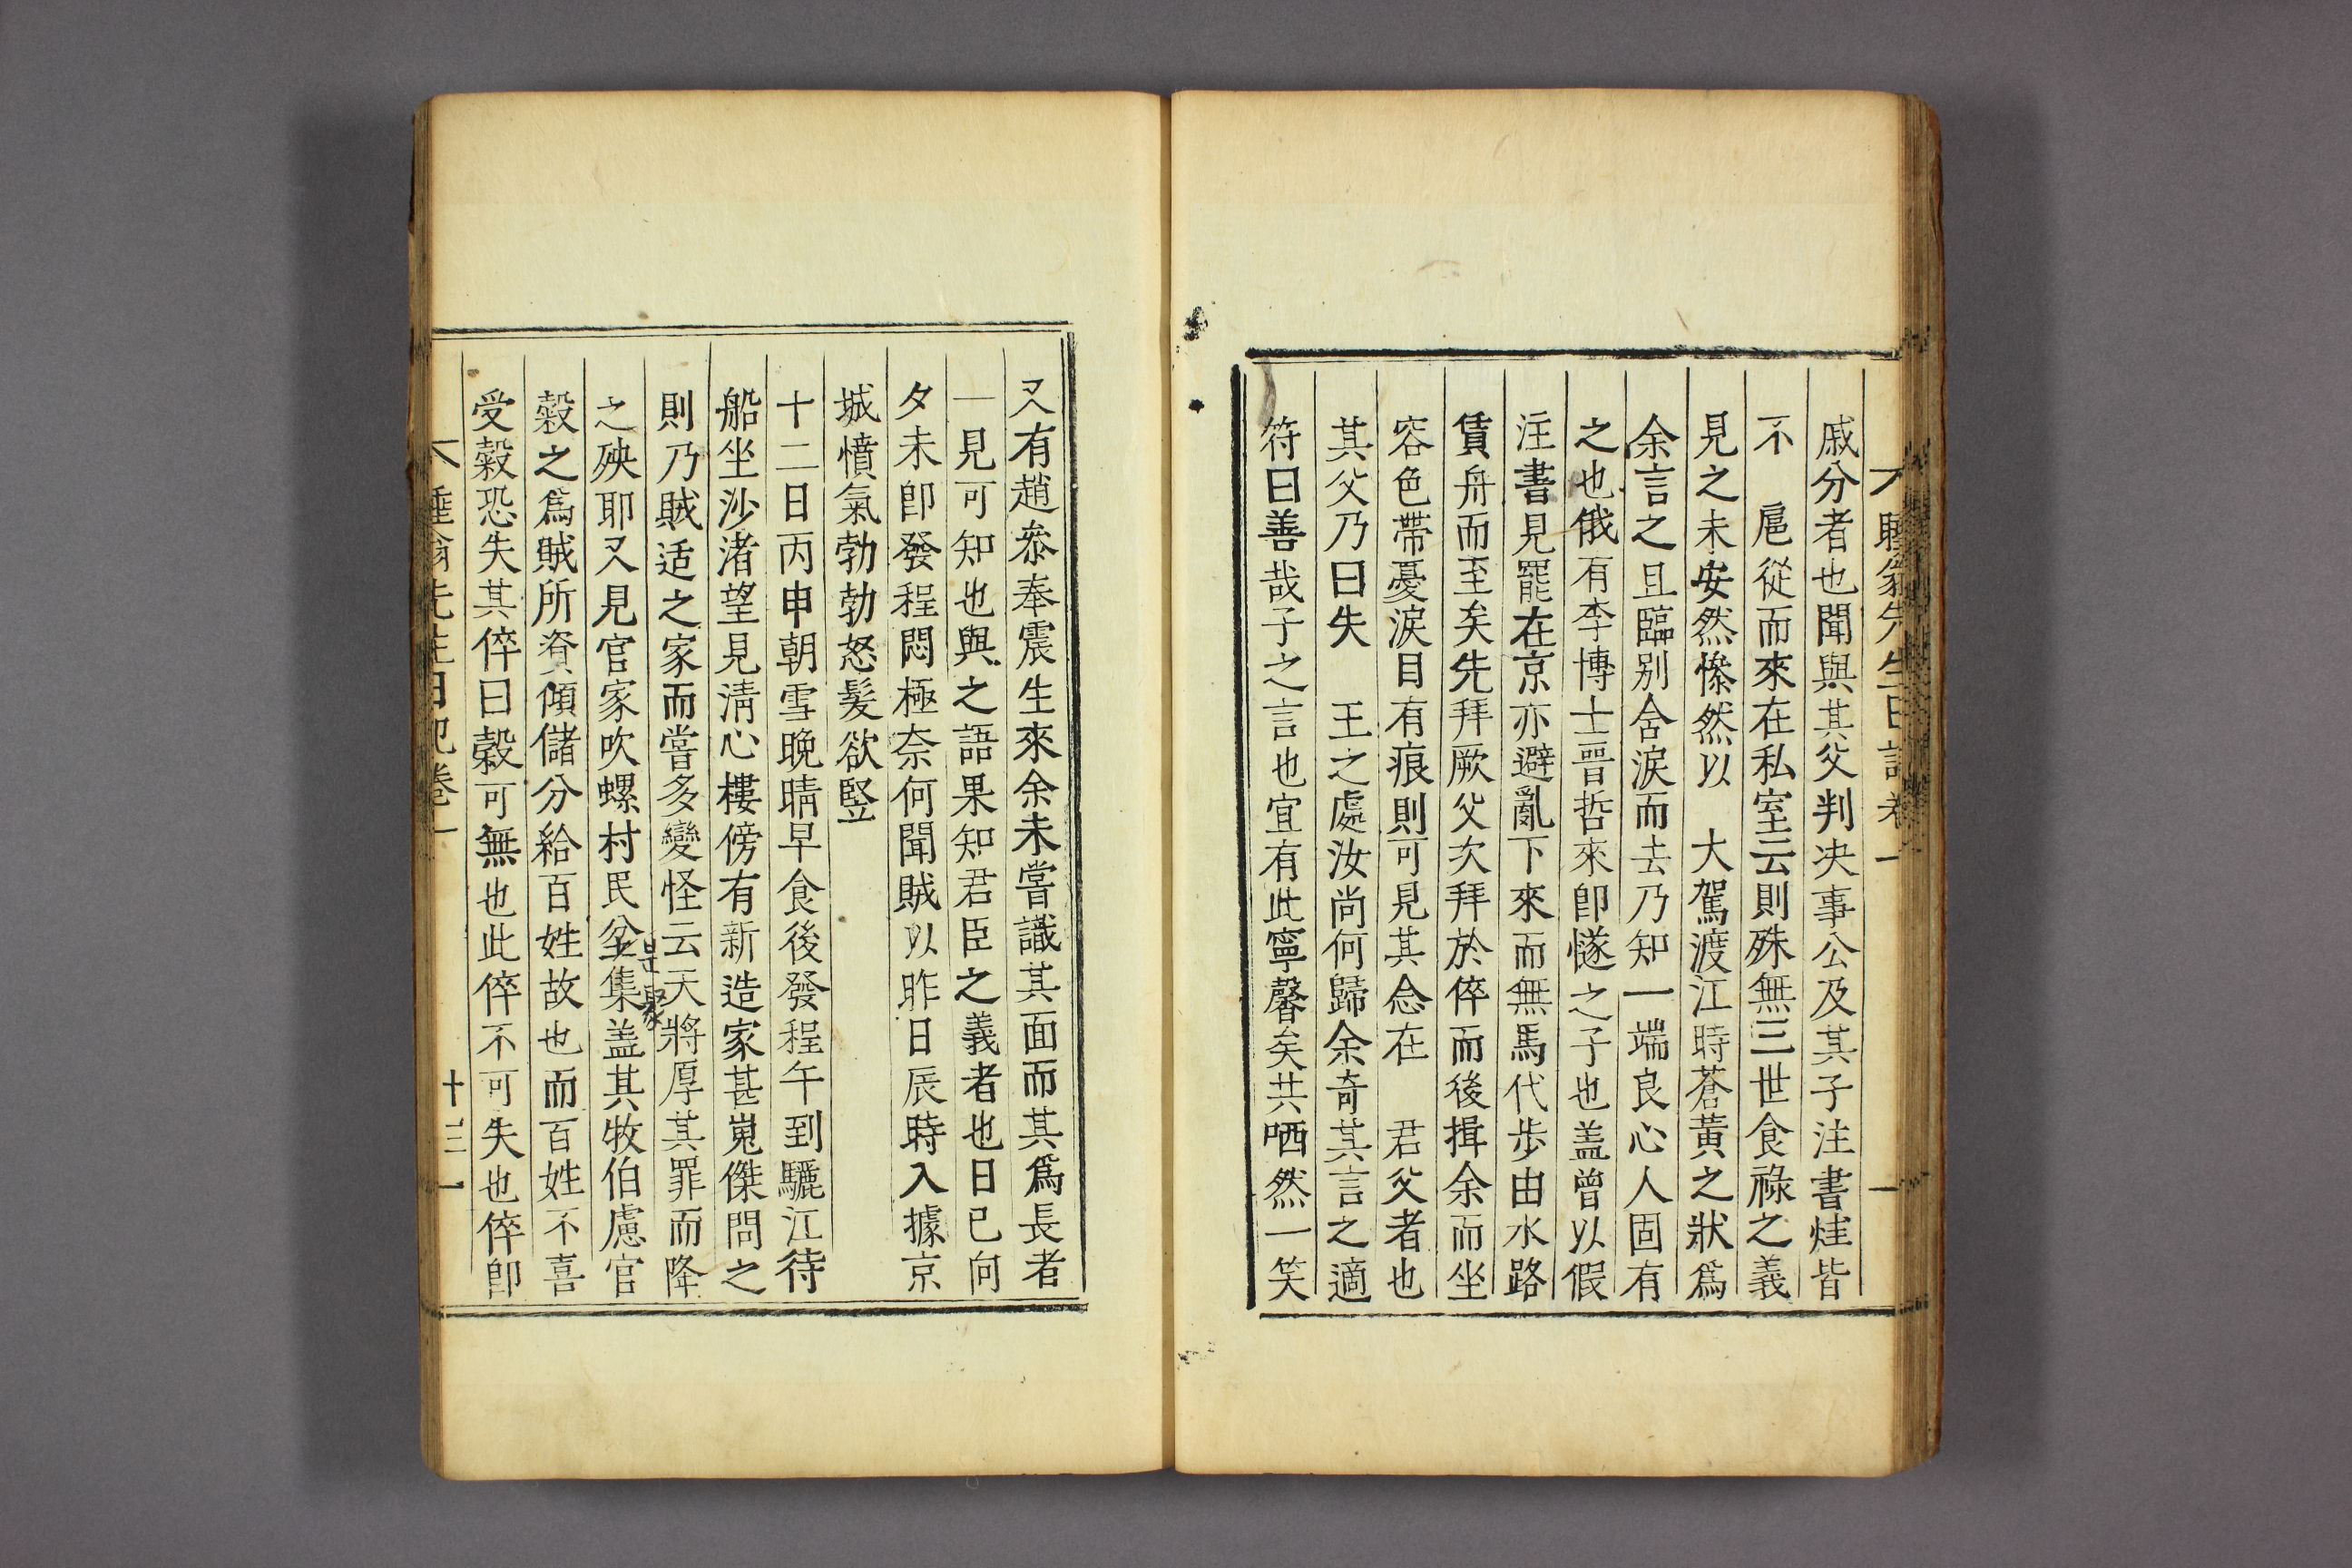 睡翁先生日記卷一
戚分者也聞與其父判决事公及其子注書烓皆
不 扈從而來在私室云則殊無三世食祿之義
見之未安然慘然以 大駕渡江時蒼黃之狀爲
余言之且臨別含淚而去乃知一端良心人固有
之也俄有李博士晋哲來卽㸂之子也盖曾以假
注書見罷在京亦避亂下來而無馬代步由水路
賃舟而至矣先拜厥父次拜於倅而後揖余而坐
容色帶憂淚目有痕則可見其念在 君父者也
其父乃曰失 王之處汝尚何歸余奇其言之適
符曰善哉子之言也宜有此寧馨矣共哂然一笑
又有趙叅奉震生來余未嘗識其面而其爲長者
一見可知也與之語果知君臣之義者也日已向
夕未卽發程悶極奈何聞賊以昨日辰時入據京
城憤氣勃勃怒髮欲竪
十二日丙申朝雪晩晴早食後發程午到驪江待
船坐沙渚望見淸心樓傍有新造家甚嵬傑問之
則乃賊适之家而嘗多變怪云天將厚其罪而降
之殃耶又見官家吹螺村民坌集盖其牧伯慮官
穀之爲賊所資傾儲分給百姓故也而百姓不喜
受穀恐失其倅曰穀可無也此倅不可失也倅卽
睡翁先生日記卷一
十三